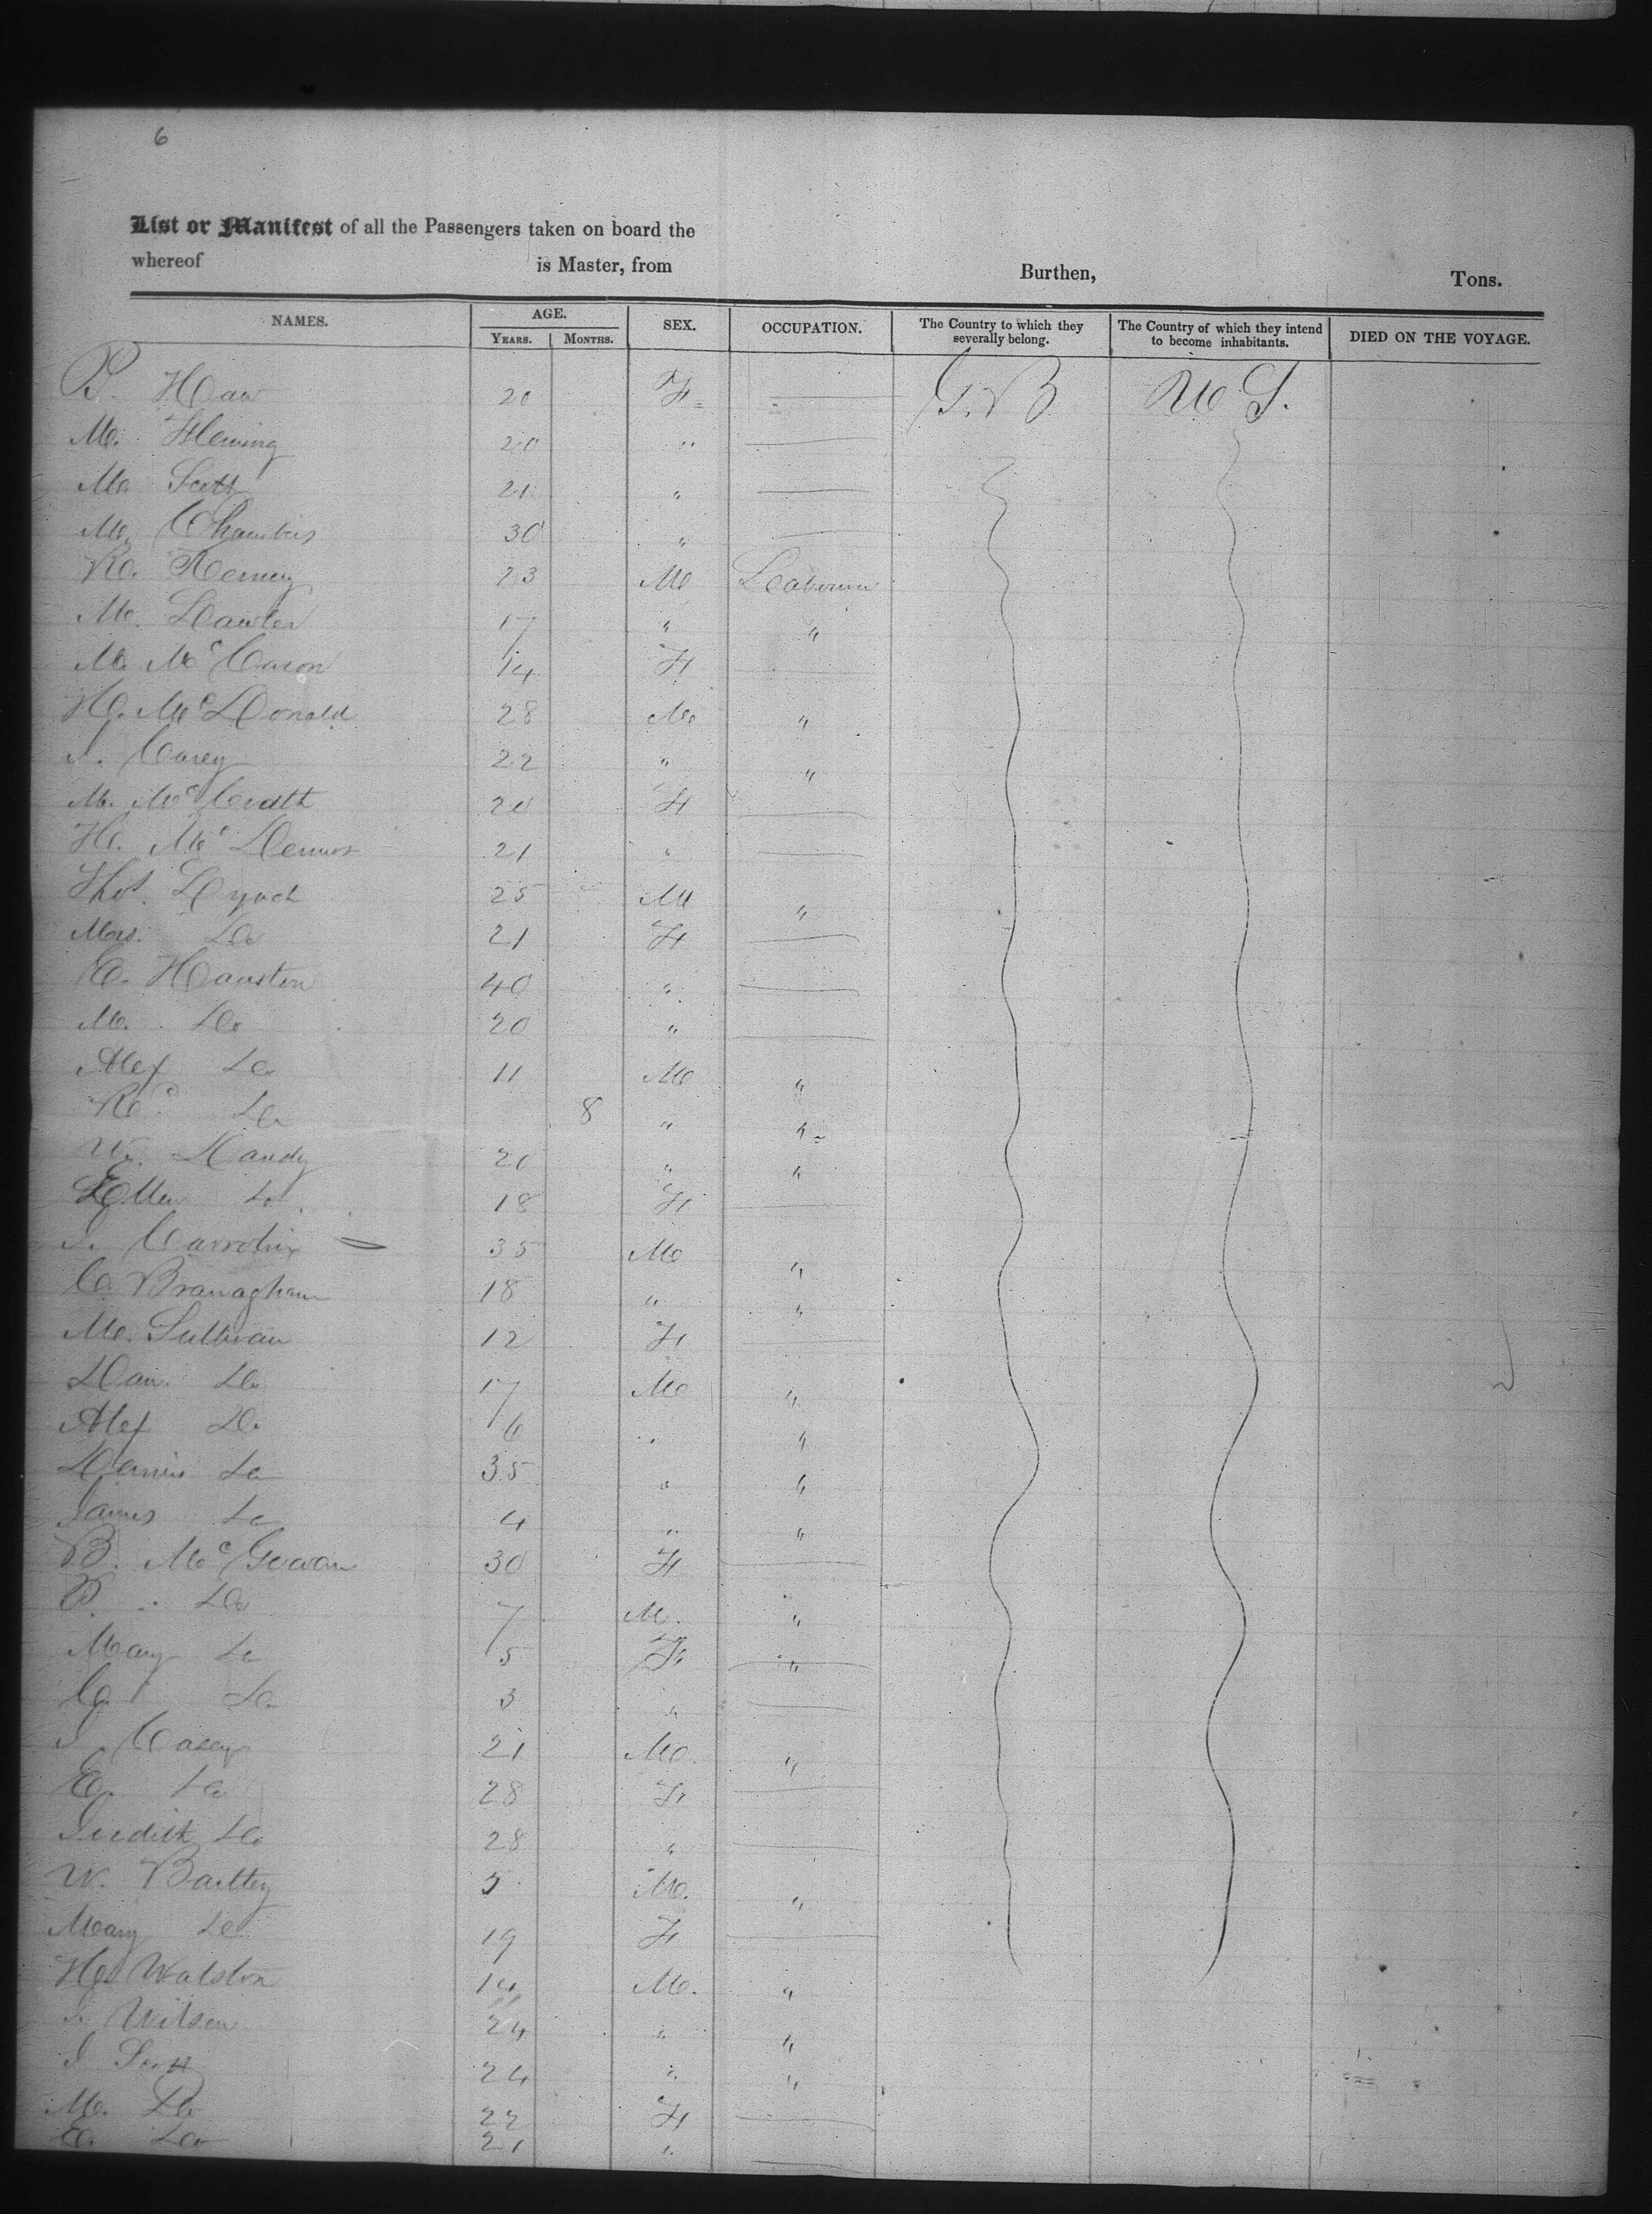 6
List or Manifest of all the Passengers taken on board the
whereof is Master, from Burthen, Tons.
NAMES. AGE. SEX. OCCUPATION. The Country to which they severally belong. The Country of which they intend to become inhabitants. DIED ON THE VOYAGE.
YEARS. MONTHS.
B. Haw 20 F G.B U S.
M. Fleming 20 "
M. Scott 21 "
M. Chambers 30 "
R. 23 M Labourer
M. Lawler 17 " "
M. Mc 14 F
H. McDonald 28 M "
J. Carey 22 " "
M. Mc 20 F
H. Mc 21 "
Thos. Lynch 25 M "
Mrs. Do 21 F
E. Hauston 40 "
M. Do 20 "
Alex Do 11 M "
Do 8 " "
W. Handy 20 " "
Ellen Do 18 F
J. 35 M "
C. Branaghan 18 " "
M. Sullivan 12 F
Dan. Do 17 M "
Alex Do 6 " "
Dennis Do 35 " "
James Do 4 " "
B. McGowan 30 F
P. Do 7 M. "
Mary Do 5 F "
C. Do 3 "
J Casey 21 M "
E. Do 28 F
Judith Do 28 "
W. Bailey 5 M. "
Mary Do 19 F
H. Walston 14 M. "
J. Wilson 24 " "
J Scott 24 " "
M. Do 22 F
E. Do 21 "